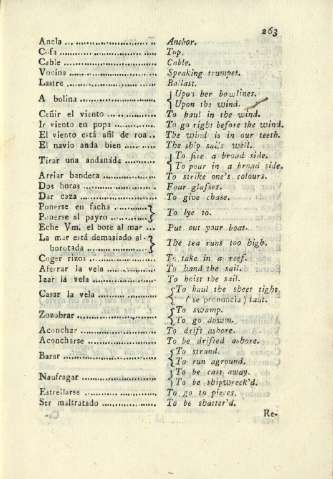 263
Ancla .......................... Anchor.
Cofa .......................... Top.
Cable .......................... Cable.
Vocina .......................... Speaking trumpet.
Lastre .......................... Ballast.
A bolina .................... { Upon her bowlines.
{ Upon the wind.
Ceñir el viento ............... To haul in the wind.
Ir viento en popa ............. To go right before the wind.
El viento está añl de roa .. The wind is in our teeth.
El navío anda bien ........ The ship sails well.
Tirar una andanáda ........ { To fire a broad side.
{ To pour in a broad side.
Arriar bandera ............... To strike one's colours.
Dos horas .................... Four glasses.
Dar caza ..................... To give chase.
Ponerse en facha ............ }
Ponerse al payro ............ } To lye to.
Eche Vm. el bote al mar ... Put out your boat.
La mar está demasiado al- }
borotada ..................... } The sea runs too high.
Coger rizos .................. To take in a reef.
Aferrar la vela ............... To hand the sail.
Izar la vela ................... To hoist the sail.
Cazar la vela ................ { To haul the sheet tight
{ (se pronuncia) taait.
Zozobrar ..................... { To swamp.
{ To go down.
Aconchar ..................... To drift ashore.
Aconcharse ................... To be drifted ashore.
Barar ......................... { To strand.
{ To run aground.
Naufragar .................... { To be cast away.
{ To be shipwreck'd.
Estrellarse ................... To go to pieces.
Ser maltratado .............. To be shatter'd.
Re-